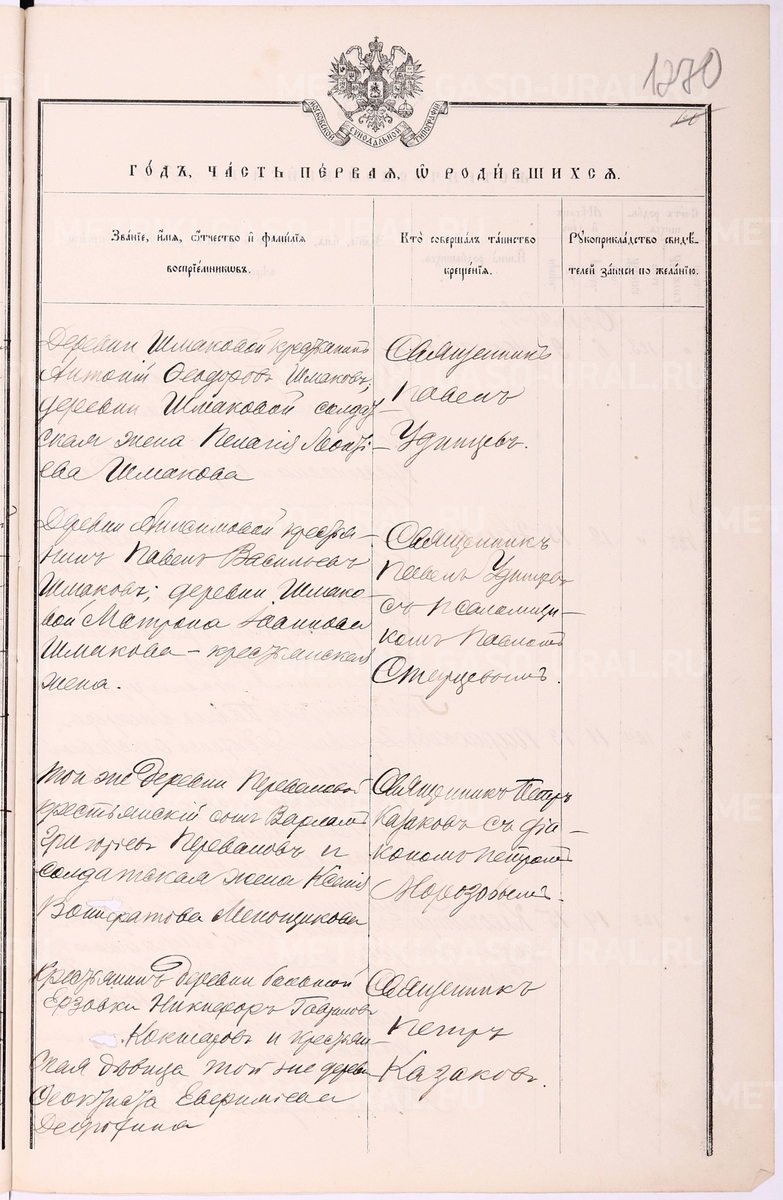 1270
МОСКОВСКОЙ СѴНОДАЛЬНОЙ ТИПОГРАФІИ
ГОДЪ, ЧАСТЬ ПЕРВАЯ, Ѿ РОДИВШИХСЯ.
Званіе, имя, отчество и фамилія
воспріемниковъ.
Кто совершалъ таинство
крещенія.
Рукоприкладство свидѣ-
телей записи по желанію.
Деревни Шмаковой крестьянинъ
Антоній Ѳеодоровъ Шмаковъ;
деревни Шмаковой солдат-
ская жена Пелагія
ева Шмакова
Священникъ
Павелъ
Удинцевъ.
Деревни Анисимовой крестья-
нинъ Павелъ Васильевъ
Шмаковъ; деревни Шмако-
вой Матрона Іоаннова
Шмакова – крестьянская
жена.
Священникъ
Павелъ Удинцевъ
съ псаломщи-
комъ Павломъ
Старцевымъ.
той же деревни Переваловой
крестьянскій сынъ Варлаамъ
Григорьевъ Переваловъ и
солдатская жена Ксенія
Меньщикова
Священникъ Петръ
Казаковъ съ діа-
кономъ Петромъ
Морозовымъ.
Крестьянинъ деревни большой
Ерзовки Никифоръ
Кокшаровъ и крестьян-
ская дѣвица той же деревни
Ѳеоктиста
Священникъ
Петръ
Казаковъ.